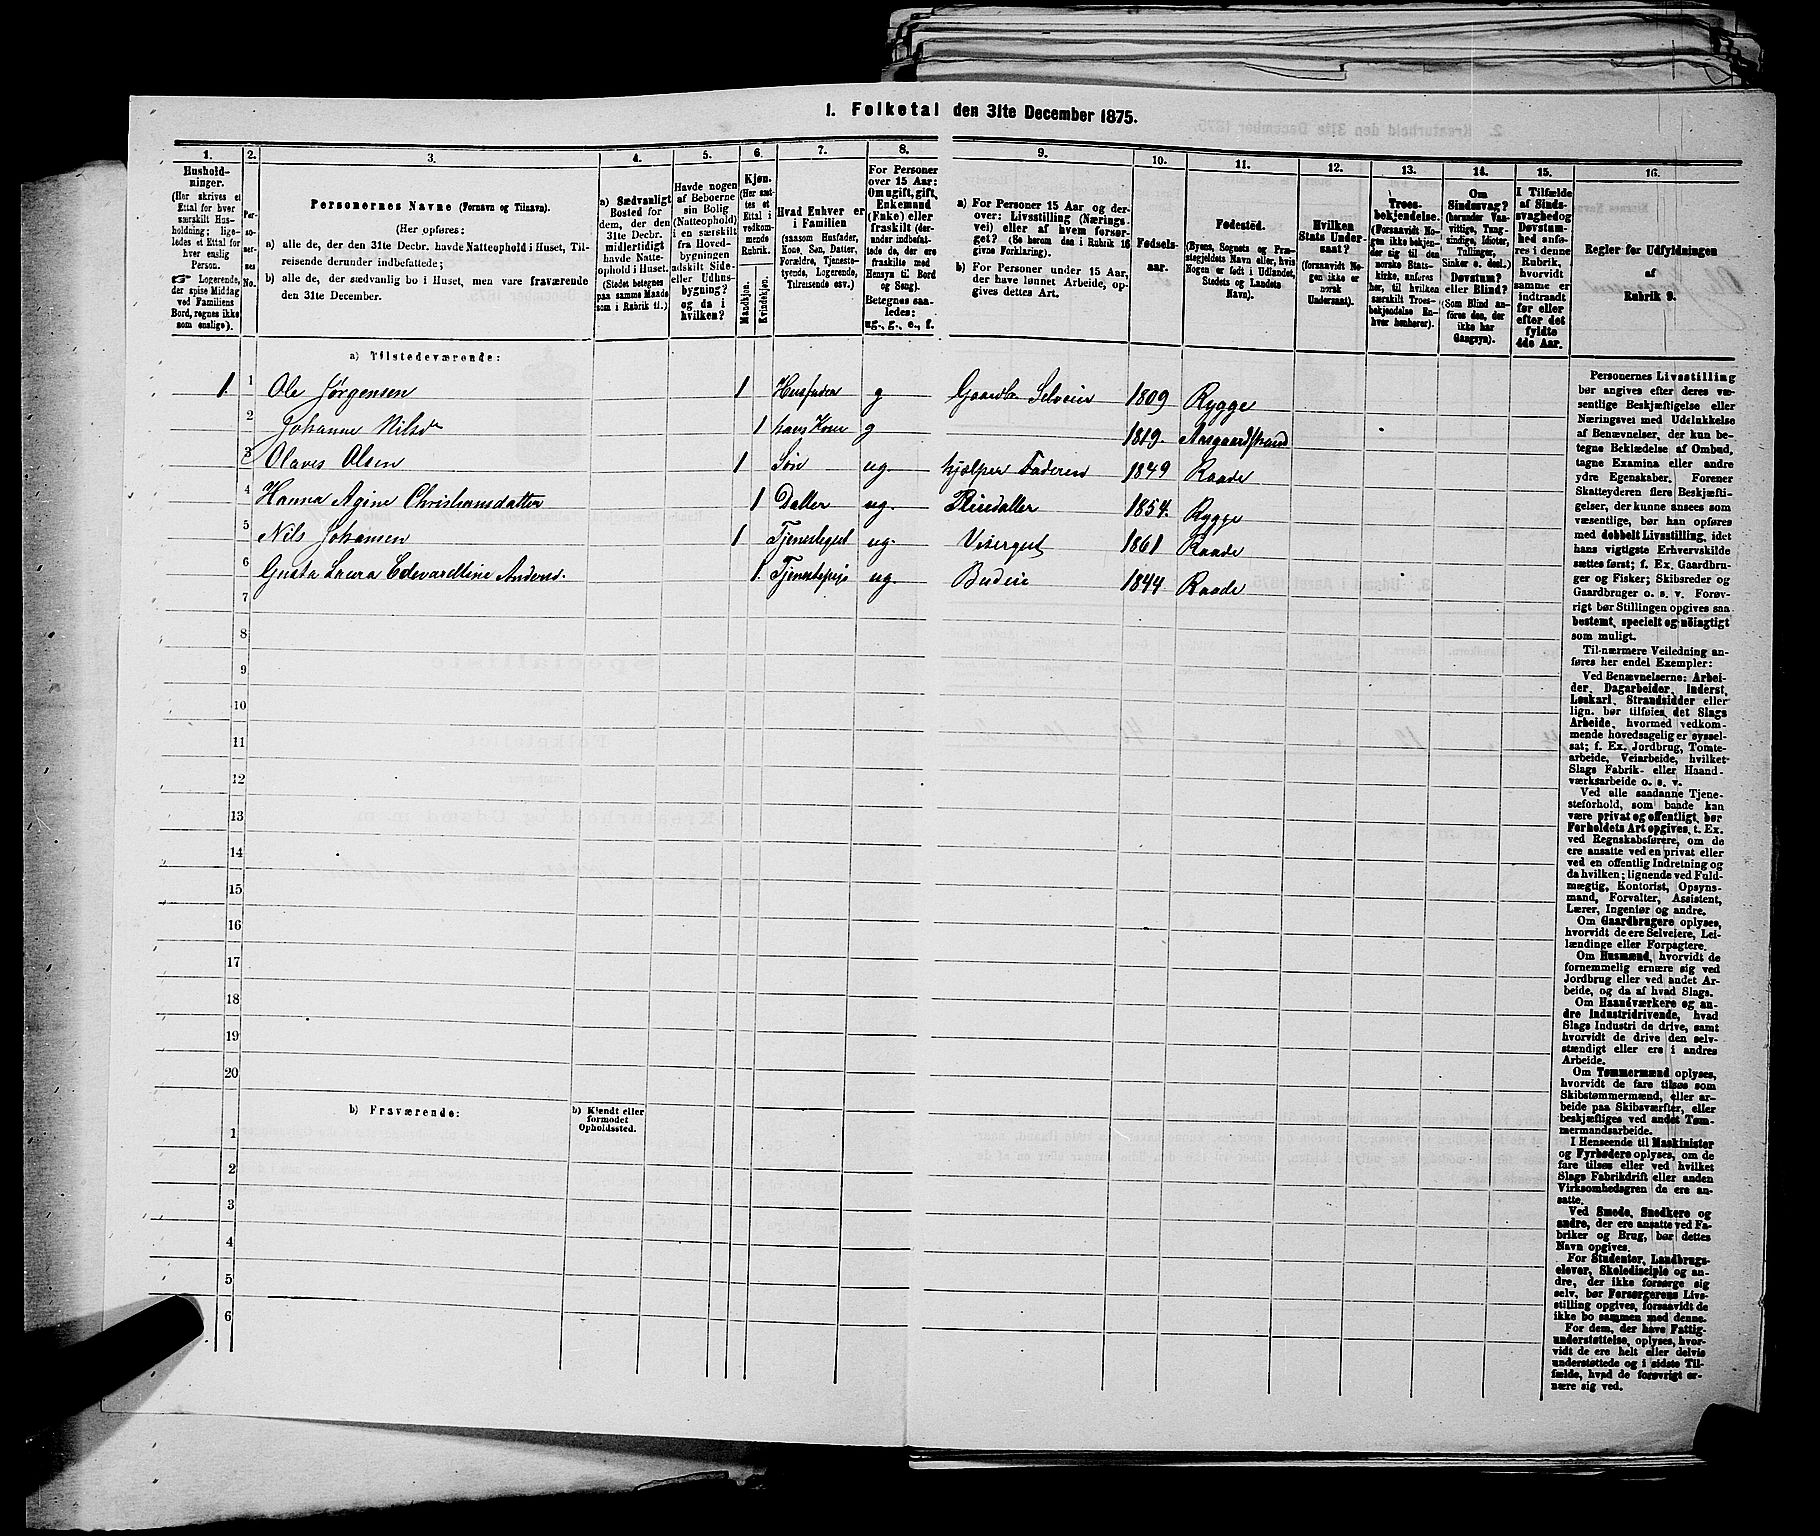 1. Folketal den 31te December 1875.
1. 2. 3. 4. 5. 6. 7. 8. 9. 10. 11. 12. 13. 14. 15. 16.
Hushold-
ninger.
(Her skrives et
Ettal for hver
særskilt Hus-
holdning; lige-
ledes et Ettal for
hver enslig
Person.
☞ Logerende,
der spise Middag
ved Familiens
Bord, regnes ikke
som enslige).
Per-
so-
ner-
nes
No.
Personernes Navne (Fornavn og Tilnavn).
(Her opføres:
a) alle de, der den 31te Decbr. havde Natteophold i Huset, Til-
reisende derunder indbefattede;
b) alle de, der sædvanlig bo i Huset, men vare fraværende
den 31te December.
a) Sædvanligt
Bosted for
dem, der den
31te Decbr.
midlertidigt
havde Natte-
ophold i Huset.
(Stedet betegnes
paa samme Maade
som i Rubrik 11.)
Havde nogen
af Beboerne
sin Bolig
(Natteophold)
i en særskilt
fra Hoved-
bygningen
adskilt Side-
eller Udhus-
bygning?
og da i
hvilken?
Kjøn.
(Her sæt-
tes et
Ettal i
vedkom-
mende
Rubrik.
Mandkjøn.
Kvindekjøn.
Hvad Enhver er
i Familien
(saasom Husfader,
Kone, Søn, Datter,
Forældre, Tjeneste-
tyende, Logerende,
Tilreisende osv.)
For Personer
over 15 Aar:
Om ugift, gift,
Enkemand
(Enke) eller
fraskilt (der-
under indbefat-
tede de, der ere
fraskilte med
Hensyn til Bord
og Seng).
Betegnes saa-
ledes:
ug., g., e., f.
a) For Personer 15 Aar og der-
over: Livsstilling (Nærings-
vei) eller af hvem forsør-
get? (Se herom den i Rubrik 16
givne Forklaring).
b) For Personer under 15 Aar,
der have lønnet Arbeide, op-
gives dettes Art.
Fødsels-
aar.
Fødested.
(Byens, Sognets og Præ-
stegjeldets Navn eller, hvis
Nogen er født i Udlandet,
Stedets og Landets
Navn).
Hvilken
Stats Under-
saat?
(forsaavidt No-
gen ikke er
norsk
Undersaat).
Troes-
bekjendelse.
(Forsaavidt No-
gen ikke bekjen-
der sig til den
norske Stats-
kirke, anføres
her, til hvilken
særskilt Troes-
bekjendelse En-
hver henhører).
Om
Sindssvag?
(herunder Van-
vittige, Tung-
sindige, Idioter,
Tullinger,
Sinker o. desl.)
Døvstum?
eller Blind?
(Som Blind an-
føres den, der
ikke har
Gangsyn).
I Tilfælde
af Sinds-
svaghed og
Døvstum-
hed anfø-
res i denne
Rubrik,
hvorvidt
samme er
indtraadt
før eller
efter det
fyldte
4de Aar.
Regler for Udfyldningen
af
Rubrik 9.
a) Tilstedeværende:
1. 1 Ole Jørgensen 1 Husfader g Gaardb. Selveier 1809 Rygge
2 Johanne Nilsdtr 1 hans Kone g 1819. Aasgaardstrand
3 Olaves Olsen 1 Søn ug hjælper Faderen 1849 Raade
4 Hanna Agine Christiansdatter 1 Datter ug. 1854. Rygge
5 Nils Johansen 1 Tjenestegut ug. Visergut 1861 Raade
6 Gusta Laura Edevardtine Anders. 1. Tjenestepige ug. Budeie 1844 Raade
7
8
9
10
11
12
13
14
15
16
17
18
19
20
b) Fraværende:
b) Kjendt eller
formodet
Opholdssted.
1
2
3
4
5
6
Personernes Livsstilling
bør angives efter deres væ-
sentlige Beskjæftigelse eller
Næringsvei med Udelukkelse
af Benævnelser, der kun be-
tegne Beklædelse af Ombud,
tagne Examina eller andre
ydre Egenskaber. Forener
Skatteyderen flere Beskjæfti-
gelser, der kunne ansees som
væsentlige, bør han opføres
med dobbelt Livsstilling, idet
hans vigtigste Erhvervskilde
sættes først; f. Ex. Gaardbru-
ger og Fisker; Skibsreder og
Gaardbruger o. s. v. Forøv-
rigt bør Stillingen opgives saa
bestemt, specielt og nöiagtigt
som muligt.
Til nærmere Veiledning an-
føres her endel Exempler:
Ved Benævnelserne: Arbei-
der, Dagarbeider, Inderst,
Løskarl, Strandsidder eller
lign. bør tilføies det Slags
Arbeide, hvormed vedkom-
mende hovedsagelig er syssel-
sat; f. Ex. Jordbrug, Tomte-
arbeide, Veiarbeide, hvilket-
Slags Fabrik- eller Haand-
værksarbeide o. s. v.
Ved alle saadanne Tjene-
steforhold, som baade kan
være privat og offentligt, bør
Forholdets Art opgives, t. Ex.
ved Regnskabsførere, om de
ere ansatte ved en privat eller
ved en offentlig Indretning og
da hvilken; lignende ved Fuld-
mægtig, Kontorist, Opsyns-
mand, Forvalter, Assistent,
Lærer, Ingeniør og andre.
Om Gaardbrugere oplyses,
hvorvidt de ere Selveiere, Lei-
lændinge eller Forpagtere.
Om Husmænd, hvorvidt de
fornemmelig ernære sig ved
Jordbrug eller ved andet Ar-
beide, og da af hvad Slags.
Om Haandværkere og an-
dre Industridrivende, hvad
Slags Industri de drive, samt
hvorvidt de drive den selv-
stændigt eller ere i andres
Arbeide.
Om Tømmermænd oplyses,
hvorvidt de fare tilsøs som
Skibstømmermænd, eller ar-
beide paa Skibsværfter, eller
beskjæftiges ved andet Tøm-
mermandsarbeide.
I Henseende til Maskinister
og Fyrbødere oplyses, om de
fare tilsøs eller ved hvilket
Slags Fabrikdrift eller anden
Virksomhedsgren de ere an-
satte.
Ved Smede, Snedkere og
andre, der ere ansatte ved Fa-
briker og Brug, bør dettes
Navn opgives.
For Studenter, Landbrugs-
elever, Skoledisciple og an-
dre, der ikke forsørge sig
selv, bør Forsørgerens Livs-
stilling opgives, forsaavidt de
ikke bo sammen med denne.
For dem, der have Fattig-
understøttelse, oplyses, hvor-
vidt de ere helt eller delvis
understøttede og i sidste Til-
fælde, hvad de forøvrigt er-
nære sig ved.